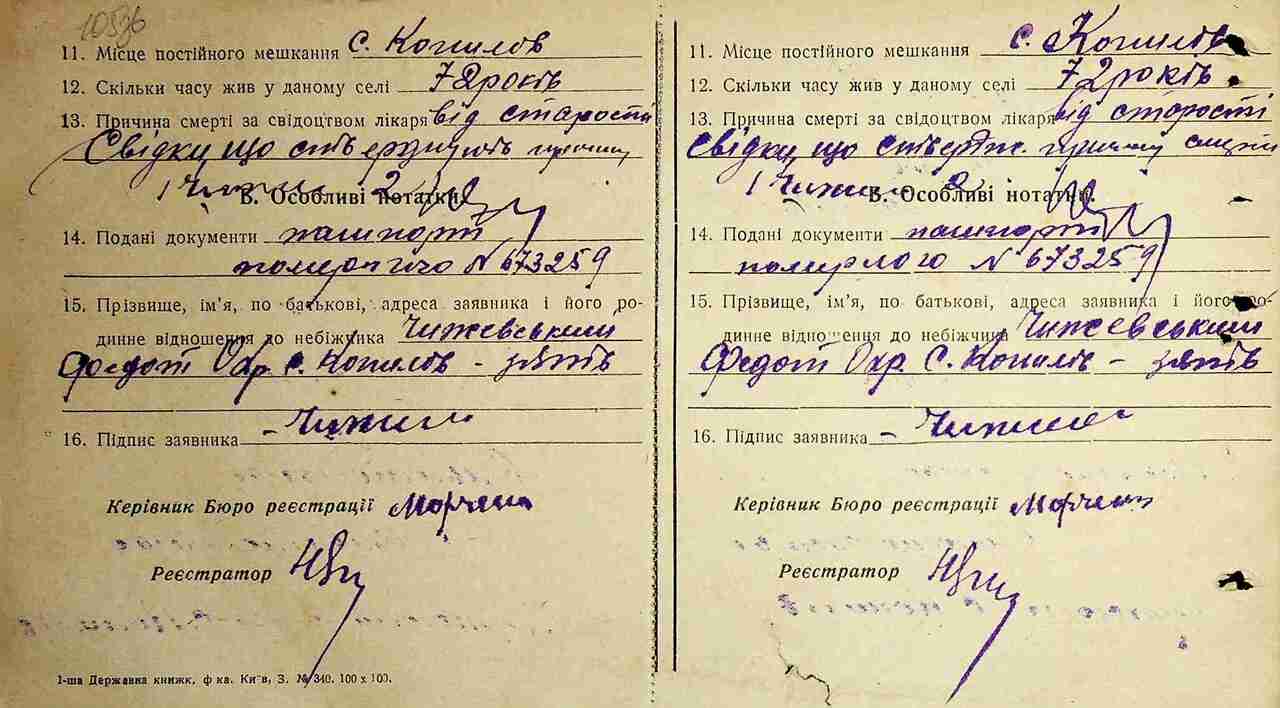 11. Місце постійного мешкання с. Копилов
12. Скільки часу жив у даному селі 72 роки
13. Причина смерті за свідоцтвом лікаря від старости
Свідки, що стверджують причину
В. Особливі нотатки.
14. Подані документи пашпорт
померлого N 673259
15. Прізвище, ім'я, по батькові, адреса заявника і його ро-
динне відношення до небіжчика Чижевський
Федот Охр. с. Копилов - зять
16. Підпис заявника
Керівник Бюро реєстрації
Реєстратор
1-ша Державна книжк. ф-ка. Київ, З. № 340. 100 x 100.
11. Місце постійного мешкання с. Копилов
12. Скільки часу жив у даному селі 72 роки
13. Причина смерті за свідоцтвом лікаря від старости
Свідки, що стверж. причину смерти
В. Особливі нотатки.
14. Подані документи пашпорт
померлого N 673259
15. Прізвище, ім'я, по батькові, адреса заявника і його ро-
динне відношення до небіжчика Чижевський
Федот Охр. с. Копилов - зять
16. Підпис заявника
Керівник Бюро реєстрації
Реєстратор